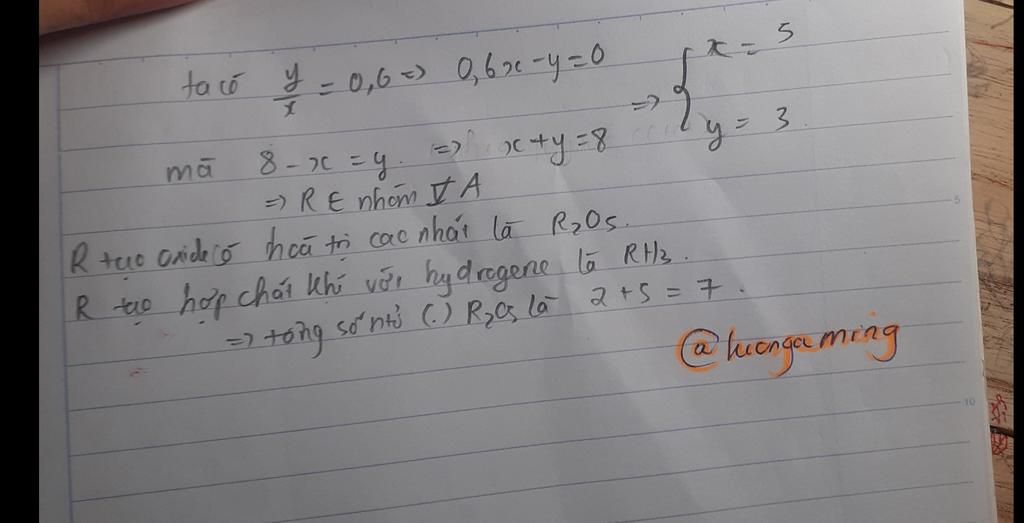 ta có y/x = 0,6 => 0,6x - y = 0 => { x = 5
y = 3
mà 8 - x = y. => x + y = 8
=> R ∈ nhóm VA
R tạo oxide có hoá trị cao nhất là R2O5.
R tạo hợp chất khí với hydrogene là RH3.
=> tổng số ntử (.) R2O5 là 2 + 5 = 7.
@luongaming
5
10